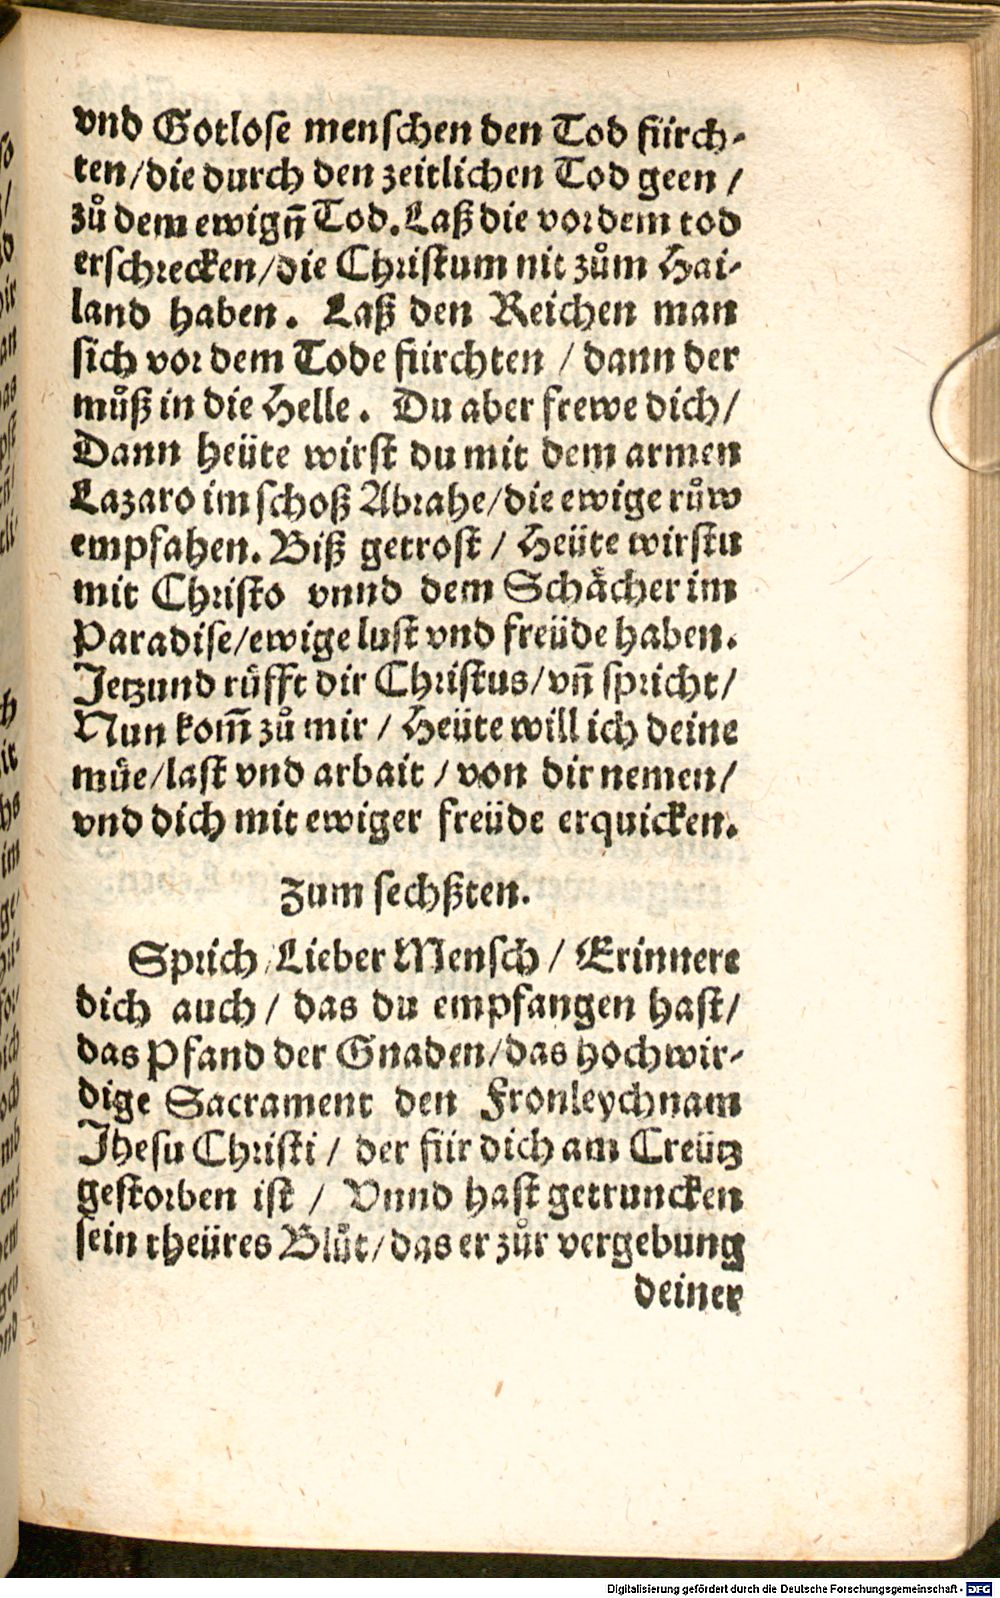 vnd Gotlose menschen den Tod fürch-
ten/die durch den zeitlichen Tod geen /
zů dem ewigñ Tod. Laß die vor dem tod
erschrecken/die Christum nit zům Hai-
land haben. Laß den Reichen man
sich vor dem Tode fürchten / dann der
můß in die Helle. Du aber frewe dich/
Dann heüte wirst du mit dem armen
Lazaro im schoß Abrahe/die ewige růw
empfahen. Biß getrost / Heüte wirstu
mit Christo vnnd dem Schächer im
Paradise/ewige lust vnd freüde haben.
Jetzund rüfft dir Christus/vñ spricht/
Nun kom̃ zů mir / Heüte will ich deine
müe/last vnd arbait / von dir nemen/
vnd dich mit ewiger freüde erquicken.
Zum sechßten.
Sprich Lieber Mensch / Erinnere
dich auch / das du empfangen hast/
das Pfand der Gnaden/das hochwir-
dige Sacrament den Fronleychnam
Jhesu Christi / der für dich am Creütz
gestorben ist / Vnnd hast getruncken
sein theüres Blůt/das er zůr vergebung
deiner
Digitalisierung gefördert durch die Deutsche Forschungsgemeinschaft - DFG